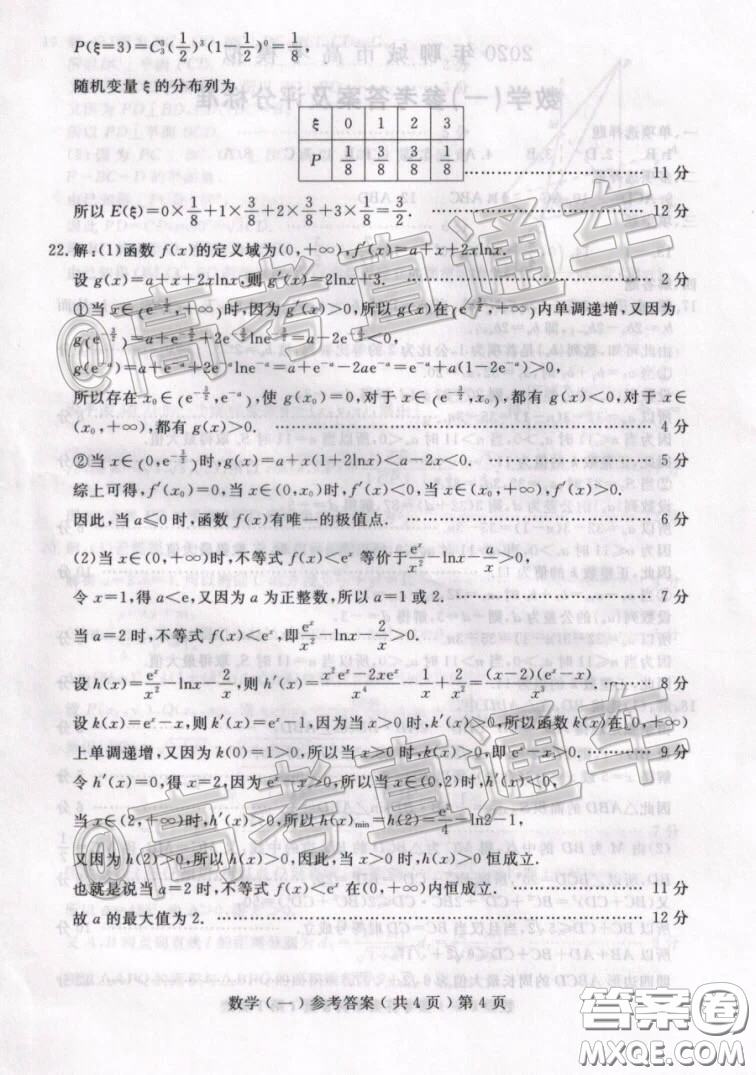 P(ξ=3)=C₃⁰(1/2)³(1-1/2)⁰=1/8,
随机变量 ξ 的分布列为
ξ 0 1 2 3
P 1/8 3/8 3/8 1/8 ………………………… 11 分
所以 E(ξ)=0×1/8+1×3/8+2×3/8+3×1/8=3/2. ………………………… 12 分
22.解:(1)函数 f(x)的定义域为(0,+∞),f′(x)=a+x+2xlnx.
设 g(x)=a+x+2xlnx,则 g′(x)=2lnx+3. ………………………… 2 分
①当 x∈(e^(-3/2),+∞)时,因为 g′(x)>0,所以 g(x)在(e^(-3/2),+∞)内单调递增,又因为
g(e^(-3/2))=a+e^(-3/2)+2e^(-3/2)lne^(-3/2)=a-2e^(-3/2)<0,
g(e^(-a))=a+e^(-a)+2e^(-a)lne^(-a)=a+e^(-a)-2ae^(-a)=e^(-a)+a(1-2e^(-a))>0,
所以存在 x₀∈(e^(-3/2),e^(-a)),使 g(x₀)=0,对于 x∈(e^(-3/2),x₀),都有 g(x)<0,对于 x∈
(x₀,+∞),都有 g(x)>0. ………………………… 4 分
②当 x∈(0,e^(-3/2)]时,g(x)=a+x(1+2lnx)<a-2x<0. ………………………… 5 分
综上可得,f′(x₀)=0,当 x∈(0,x₀),f′(x)<0,当 x∈(x₀,+∞),f′(x)>0.
因此,当 a≤0 时,函数 f(x)有唯一的极值点. ………………………… 6 分
(2)当 x∈(0,+∞)时,不等式 f(x)<eˣ 等价于 eˣ/x²-lnx-a/x>0,
令 x=1,得 a<e,又因为 a 为正整数,所以 a=1 或 2. ………………………… 7 分
当 a=2 时,不等式 f(x)<eˣ,即 eˣ/x²-lnx-2/x>0.
设 h(x)=eˣ/x²-lnx-2/x,则 h′(x)=(x²eˣ-2xeˣ)/x⁴-1/x+2/x²=(x-2)(eˣ-x)/x³. ………… 8 分
设 k(x)=eˣ-x,则 k′(x)=eˣ-1,因为当 x>0 时,k′(x)>0,所以函数 k(x)在[0,+∞)
上单调递增,又因为 k(0)=1>0,所以当 x>0 时,k(x)>0,即 eˣ-x>0. ………… 9 分
令 h′(x)=0,得 x=2,因为当 x∈(0,2)时,h′(x)<0,
当 x∈(2,+∞)时,h′(x)>0,所以 h(x)min=h(2)=e²/4-ln2-1,
又因为 h(2)>0,所以 h(x)>0,因此,当 x>0 时,h(x)>0 恒成立.
也就是说当 a=2 时,不等式 f(x)<eˣ 在(0,+∞)内恒成立. ………………………… 11 分
故 a 的最大值为 2. ………………………… 12 分
数学(一)参考答案(共 4 页)第 4 页
@高考直通车
@高考直通车
答案圈
MXQE.COM